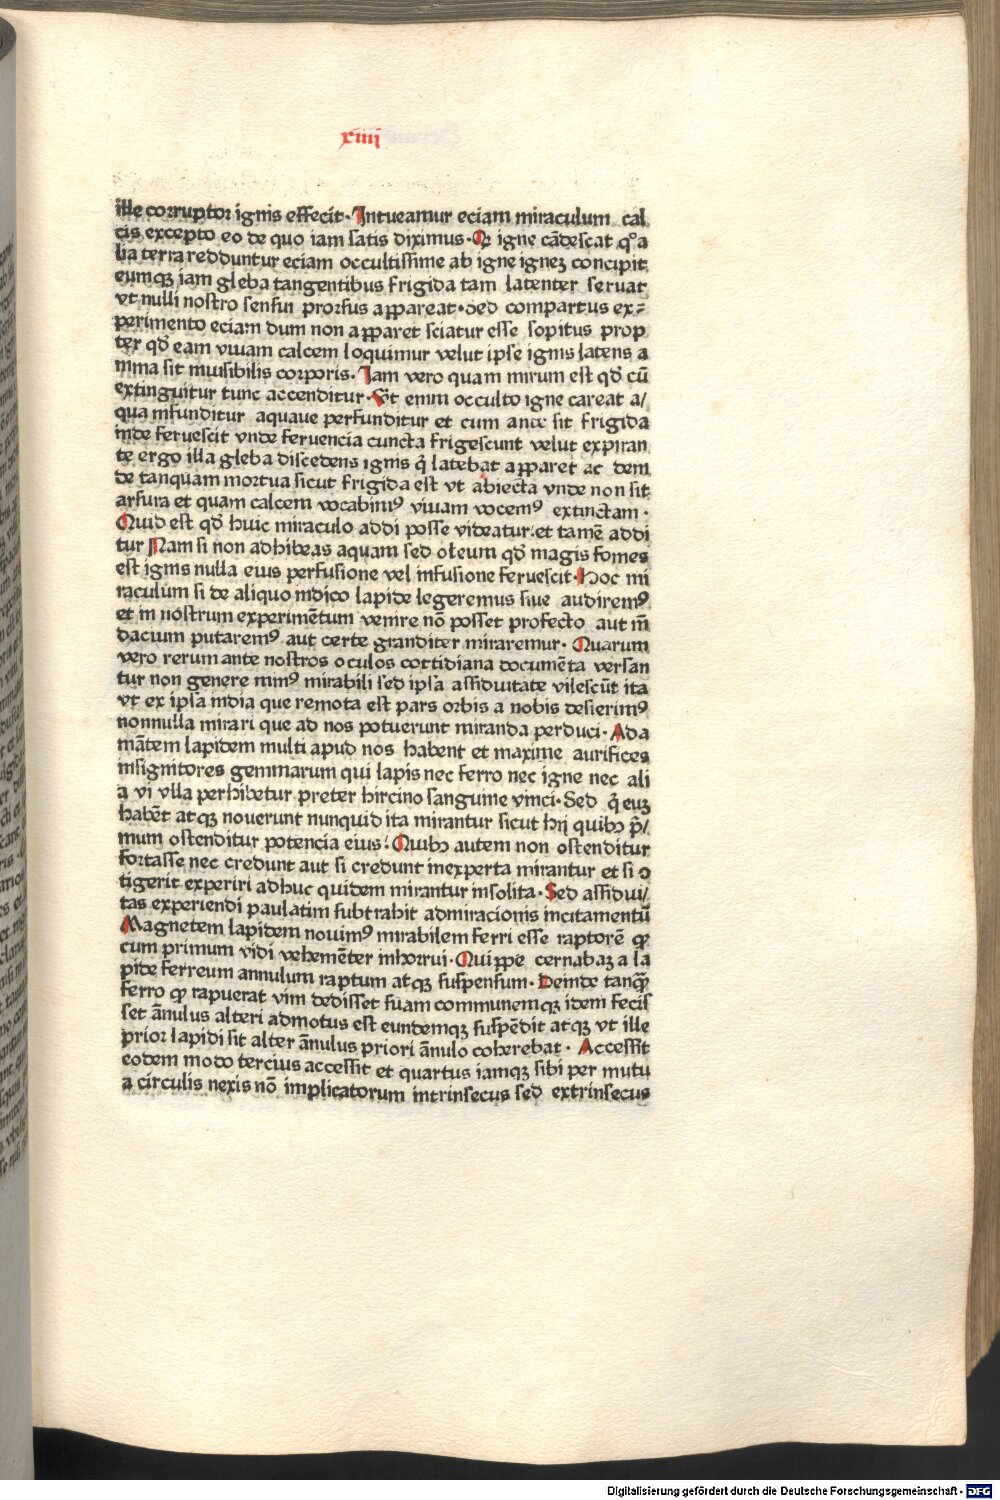 xiiij
ille corruptor ignis effecit. Intueamur eciam miraculum cal
cis excepto eo de quo iam satis diximus. Qꝛ igne cādescat qͦ a
lia terra redduntur eciam occultissime ab igne igneꝫ concipit
eumqꝫ iam gleba tangentibus frigida tam latenter seruat
vt nulli nostro sensui prorsus appareat. Sed compartus ex⸗
perimento eciam dum non apparet sciatur esse sopitus prop
ter qd̄ eam viuam calcem loquimur velut ipse ignis latens a
nima sit inuisibilis corporis. Iam vero quam mirum est qd̄ cū
extinguitur tunc accenditur. Vt enim occulto igne careat a/
qua infunditur aquaue perfunditur et cum ante sit frigida
inde feruescit vnde feruencia cuncta frigescunt velut expiran
te ergo illa gleba discedens ignis q̄ latebat apparet ac dein
de tanquam mortua sicut frigida est vt abiecta vnde non sit
arsura et quam calcem vocabimꝰ viuam vocemꝰ extinctam.
Quid est qd̄ huic miraculo addi posse videatur: et tamē addi
tur Nam si non adhibeas aquam sed oleum qd̄ magis fomes
est ignis nulla eius perfusione vel infusione feruescit. Hoc mi
raculum si de aliquo indico lapide legeremus siue audiremꝰ
et in nostrum experimētum venire nō posset profecto aut m̄
dacium putaremꝰ aut certe granditer miraremur. Quarum
vero rerum ante nostros oculos cottidiana documēta versan
tur non genere minꝰ mirabili sed ipsa assiduitate vilescūt ita
vt ex ipsa india que remota est pars orbis a nobis desierimꝰ
nonnulla mirari que ad nos potuerunt miranda perduci. Ada
mātem lapidem multi apud nos habent et maxime aurifices
insignitores gemmarum qui lapis nec ferro nec igne nec ali
q̄ vi vlla perhibetur preter hircino sanguine vinci. Sed q̄ euꝫ
habēt atqꝫ nouerunt nunquid ita mirantur sicut hij quibꝫ p̄/
mum ostenditur potencia eius: Quibꝫ autem non ostenditur
fortasse nec credunt aut si credunt inexperta mirantur et si o
tigerit experiri adhuc quidem mirantur insolita. Sed assidui/
tas experiendi paulatim subtrahit admiracionis incitamentū
Magnetem lapidem nouimꝰ mirabilem ferri esse raptorē qꝫ
cum primum vidi vehemēter inhorrui. Quippe cernabaꝫ a la
pide ferreum annulum raptum atqꝫ suspensum. Deinde tanqꝫ̄
ferro qꝫ rapuerat vim dedisset suam communemqꝫ idem fecis
set ānulus alteri admotus est eundemqꝫ suspēdit atqꝫ vt ille
prior lapidi sit alter ānulus priori ānulo coherebat. Accessit
eodem modo tercius accessit et quartus iamqꝫ sibi per mutu
a circulis nexis nō implicatorum intrinsecus sed extrinsecus
Digitalisierung gefördert durch die Deutsche Forschungsgemeinschaft - DFG